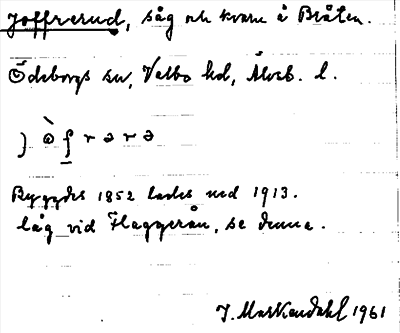 Joffrerud, såg och kvarn å Bråten.
Ödeborgs sn, Valbo hd, Älvsb. l.
Byggdes 1852 lades ned 1913.
låg vid Flaggerån, se denna.
J. Markendahl 1961